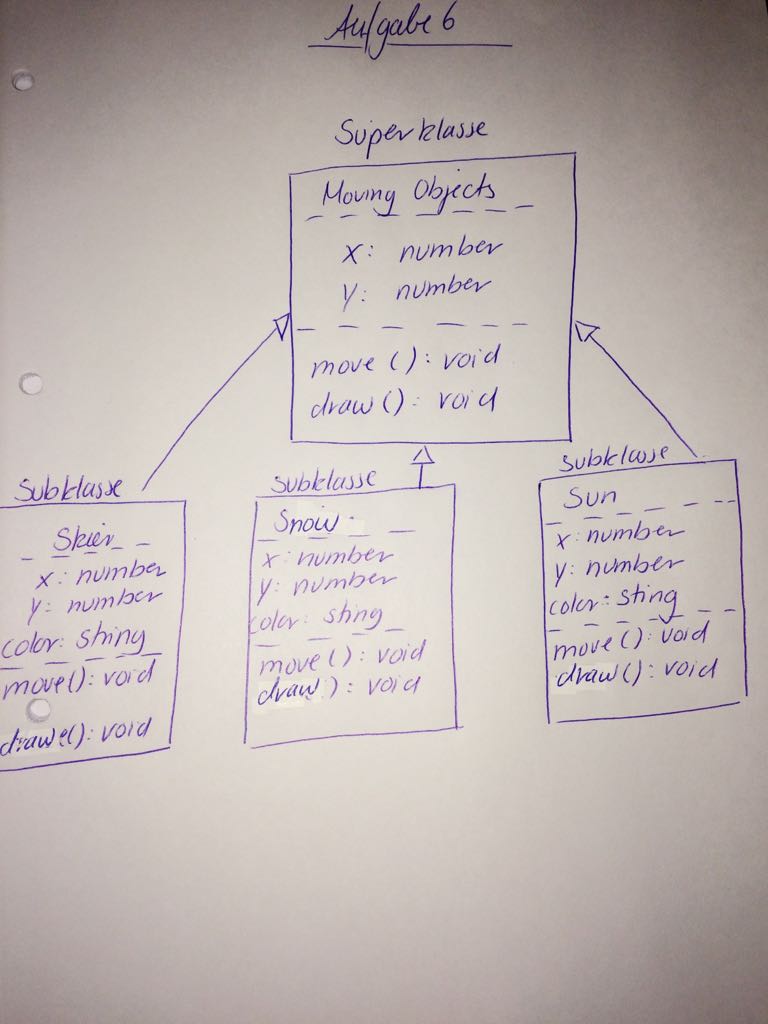 Aufgabe 6
Superklasse
Moving Objects
x: number
y: number
move (): void
draw (): void
Subklasse
Skier
x: number
y: number
color: string
move(): void
drawe(): void
Subklasse
Snow
x: number
y: number
color: string
move(): void
draw ): void
Subklasse
Sun
x: number
y: number
color: sting
move(): void
draw(): void